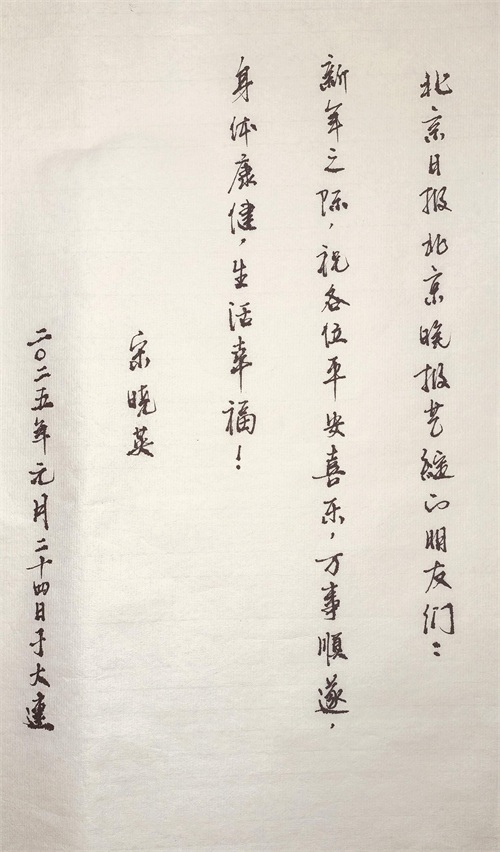 北京日报北京晚报艺综的朋友们：
新年之际，祝各位平安喜乐，万事顺遂，
身体康健，生活幸福！
宋晓英
二〇二五年元月二十四日于大连